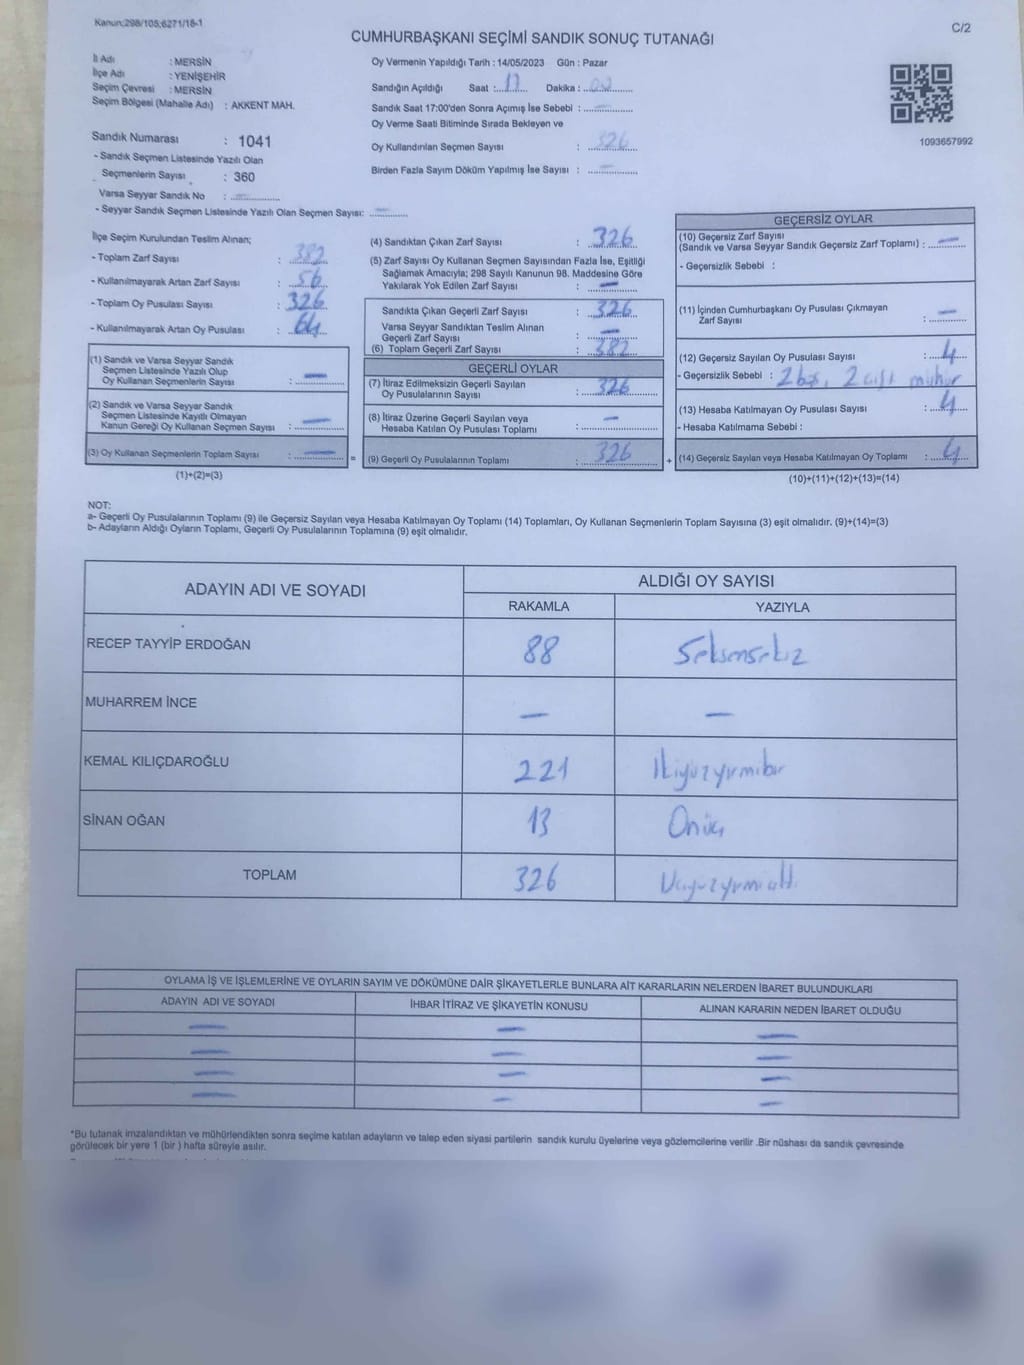 Kanun:298/105;6271/18-1
C/2
CUMHURBAŞKANI SEÇİMİ SANDIK SONUÇ TUTANAĞI
İl Adı : MERSİN
İlçe Adı : YENİŞEHİR
Seçim Çevresi : MERSİN
Seçim Bölgesi (Mahalle Adı) : AKKENT MAH.
Oy Vermenin Yapıldığı Tarih : 14/05/2023 Gün : Pazar
Sandığın Açıldığı Saat : 17 Dakika : 00
Sandık Saat 17:00'den Sonra Açımış İse Sebebi : —
Oy Verme Saati Bitiminde Sırada Bekleyen ve
Oy Kullandırılan Seçmen Sayısı : 326
Birden Fazla Sayım Döküm Yapılmış İse Sayısı : —
1093657992
Sandık Numarası : 1041
- Sandık Seçmen Listesinde Yazılı Olan
Seçmenlerin Sayısı : 360
Varsa Seyyar Sandık No : —
- Seyyar Sandık Seçmen Listesinde Yazılı Olan Seçmen Sayısı: —
İlçe Seçim Kurulundan Teslim Alınan;
- Toplam Zarf Sayısı : 382
- Kullanılmayarak Artan Zarf Sayısı : 56
- Toplam Oy Pusulası Sayısı : 326
- Kullanılmayarak Artan Oy Pusulası : 64
(1) Sandık ve Varsa Seyyar Sandık
Seçmen Listesinde Yazılı Olup
Oy Kullanan Seçmenlerin Sayısı : —
(2) Sandık ve Varsa Seyyar Sandık
Seçmen Listesinde Kayıtlı Olmayan
Kanun Gereği Oy Kullanan Seçmen Sayısı : —
(3) Oy Kullanan Seçmenlerin Toplam Sayısı : — =
(1)+(2)=(3)
(4) Sandıktan Çıkan Zarf Sayısı : 326
(5) Zarf Sayısı Oy Kullanan Seçmen Sayısından Fazla İse, Eşitliği
Sağlamak Amacıyla; 298 Sayılı Kanunun 98. Maddesine Göre
Yakılarak Yok Edilen Zarf Sayısı : —
Sandıkta Çıkan Geçerli Zarf Sayısı : 326
Varsa Seyyar Sandıktan Teslim Alınan
Geçerli Zarf Sayısı : —
(6) Toplam Geçerli Zarf Sayısı : 382
GEÇERLİ OYLAR
(7) İtiraz Edilmeksizin Geçerli Sayılan
Oy Pusulalarının Sayısı : 326
(8) İtiraz Üzerine Geçerli Sayılan veya
Hesaba Katılan Oy Pusulası Toplamı : —
(9) Geçerli Oy Pusulalarının Toplamı : 326 +
GEÇERSİZ OYLAR
(10) Geçersiz Zarf Sayısı
(Sandık ve Varsa Seyyar Sandık Geçersiz Zarf Toplamı) : —
- Geçersizlik Sebebi :
(11) İçinden Cumhurbaşkanı Oy Pusulası Çıkmayan
Zarf Sayısı : —
(12) Geçersiz Sayılan Oy Pusulası Sayısı : 4
- Geçersizlik Sebebi : 2 boş, 2 çift mühür
(13) Hesaba Katılmayan Oy Pusulası Sayısı : 4
- Hesaba Katılmama Sebebi :
(14) Geçersiz Sayılan veya Hesaba Katılmayan Oy Toplamı : 4
(10)+(11)+(12)+(13)=(14)
NOT:
a- Geçerli Oy Pusulalarının Toplamı (9) ile Geçersiz Sayılan veya Hesaba Katılmayan Oy Toplamı (14) Toplamları, Oy Kullanan Seçmenlerin Toplam Sayısına (3) eşit olmalıdır. (9)+(14)=(3)
b- Adayların Aldığı Oyların Toplamı, Geçerli Oy Pusulalarının Toplamına (9) eşit olmalıdır.
ADAYIN ADI VE SOYADI ALDIĞI OY SAYISI
RAKAMLA YAZIYLA
RECEP TAYYİP ERDOĞAN 88 Seksensekiz
MUHARREM İNCE — —
KEMAL KILIÇDAROĞLU 221 İkiyüzyirmibir
SİNAN OĞAN 13 Onüç
TOPLAM 326 Üçyüzyirmialtı
OYLAMA İŞ VE İŞLEMLERİNE VE OYLARIN SAYIM VE DÖKÜMÜNE DAİR ŞİKAYETLERLE BUNLARA AİT KARARLARIN NELERDEN İBARET BULUNDUKLARI
ADAYIN ADI VE SOYADI İHBAR İTİRAZ VE ŞİKAYETİN KONUSU ALINAN KARARIN NEDEN İBARET OLDUĞU
— — —
— — —
— — —
— — —
*Bu tutanak imzalandıktan ve mühürlendikten sonra seçime katılan adayların ve talep eden siyasi partilerin sandık kurulu üyelerine veya gözlemcilerine verilir .Bir nüshası da sandık çevresinde
görülecek bir yere 1 (bir ) hafta süreyle asılır.